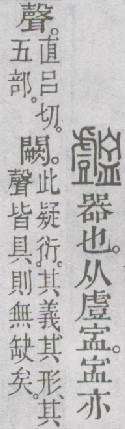 器也。从䖒𥁀。𥁀亦
聲。
直呂切。
五部。
闕。
此疑衍。其義其形其
聲皆具則無缺矣。